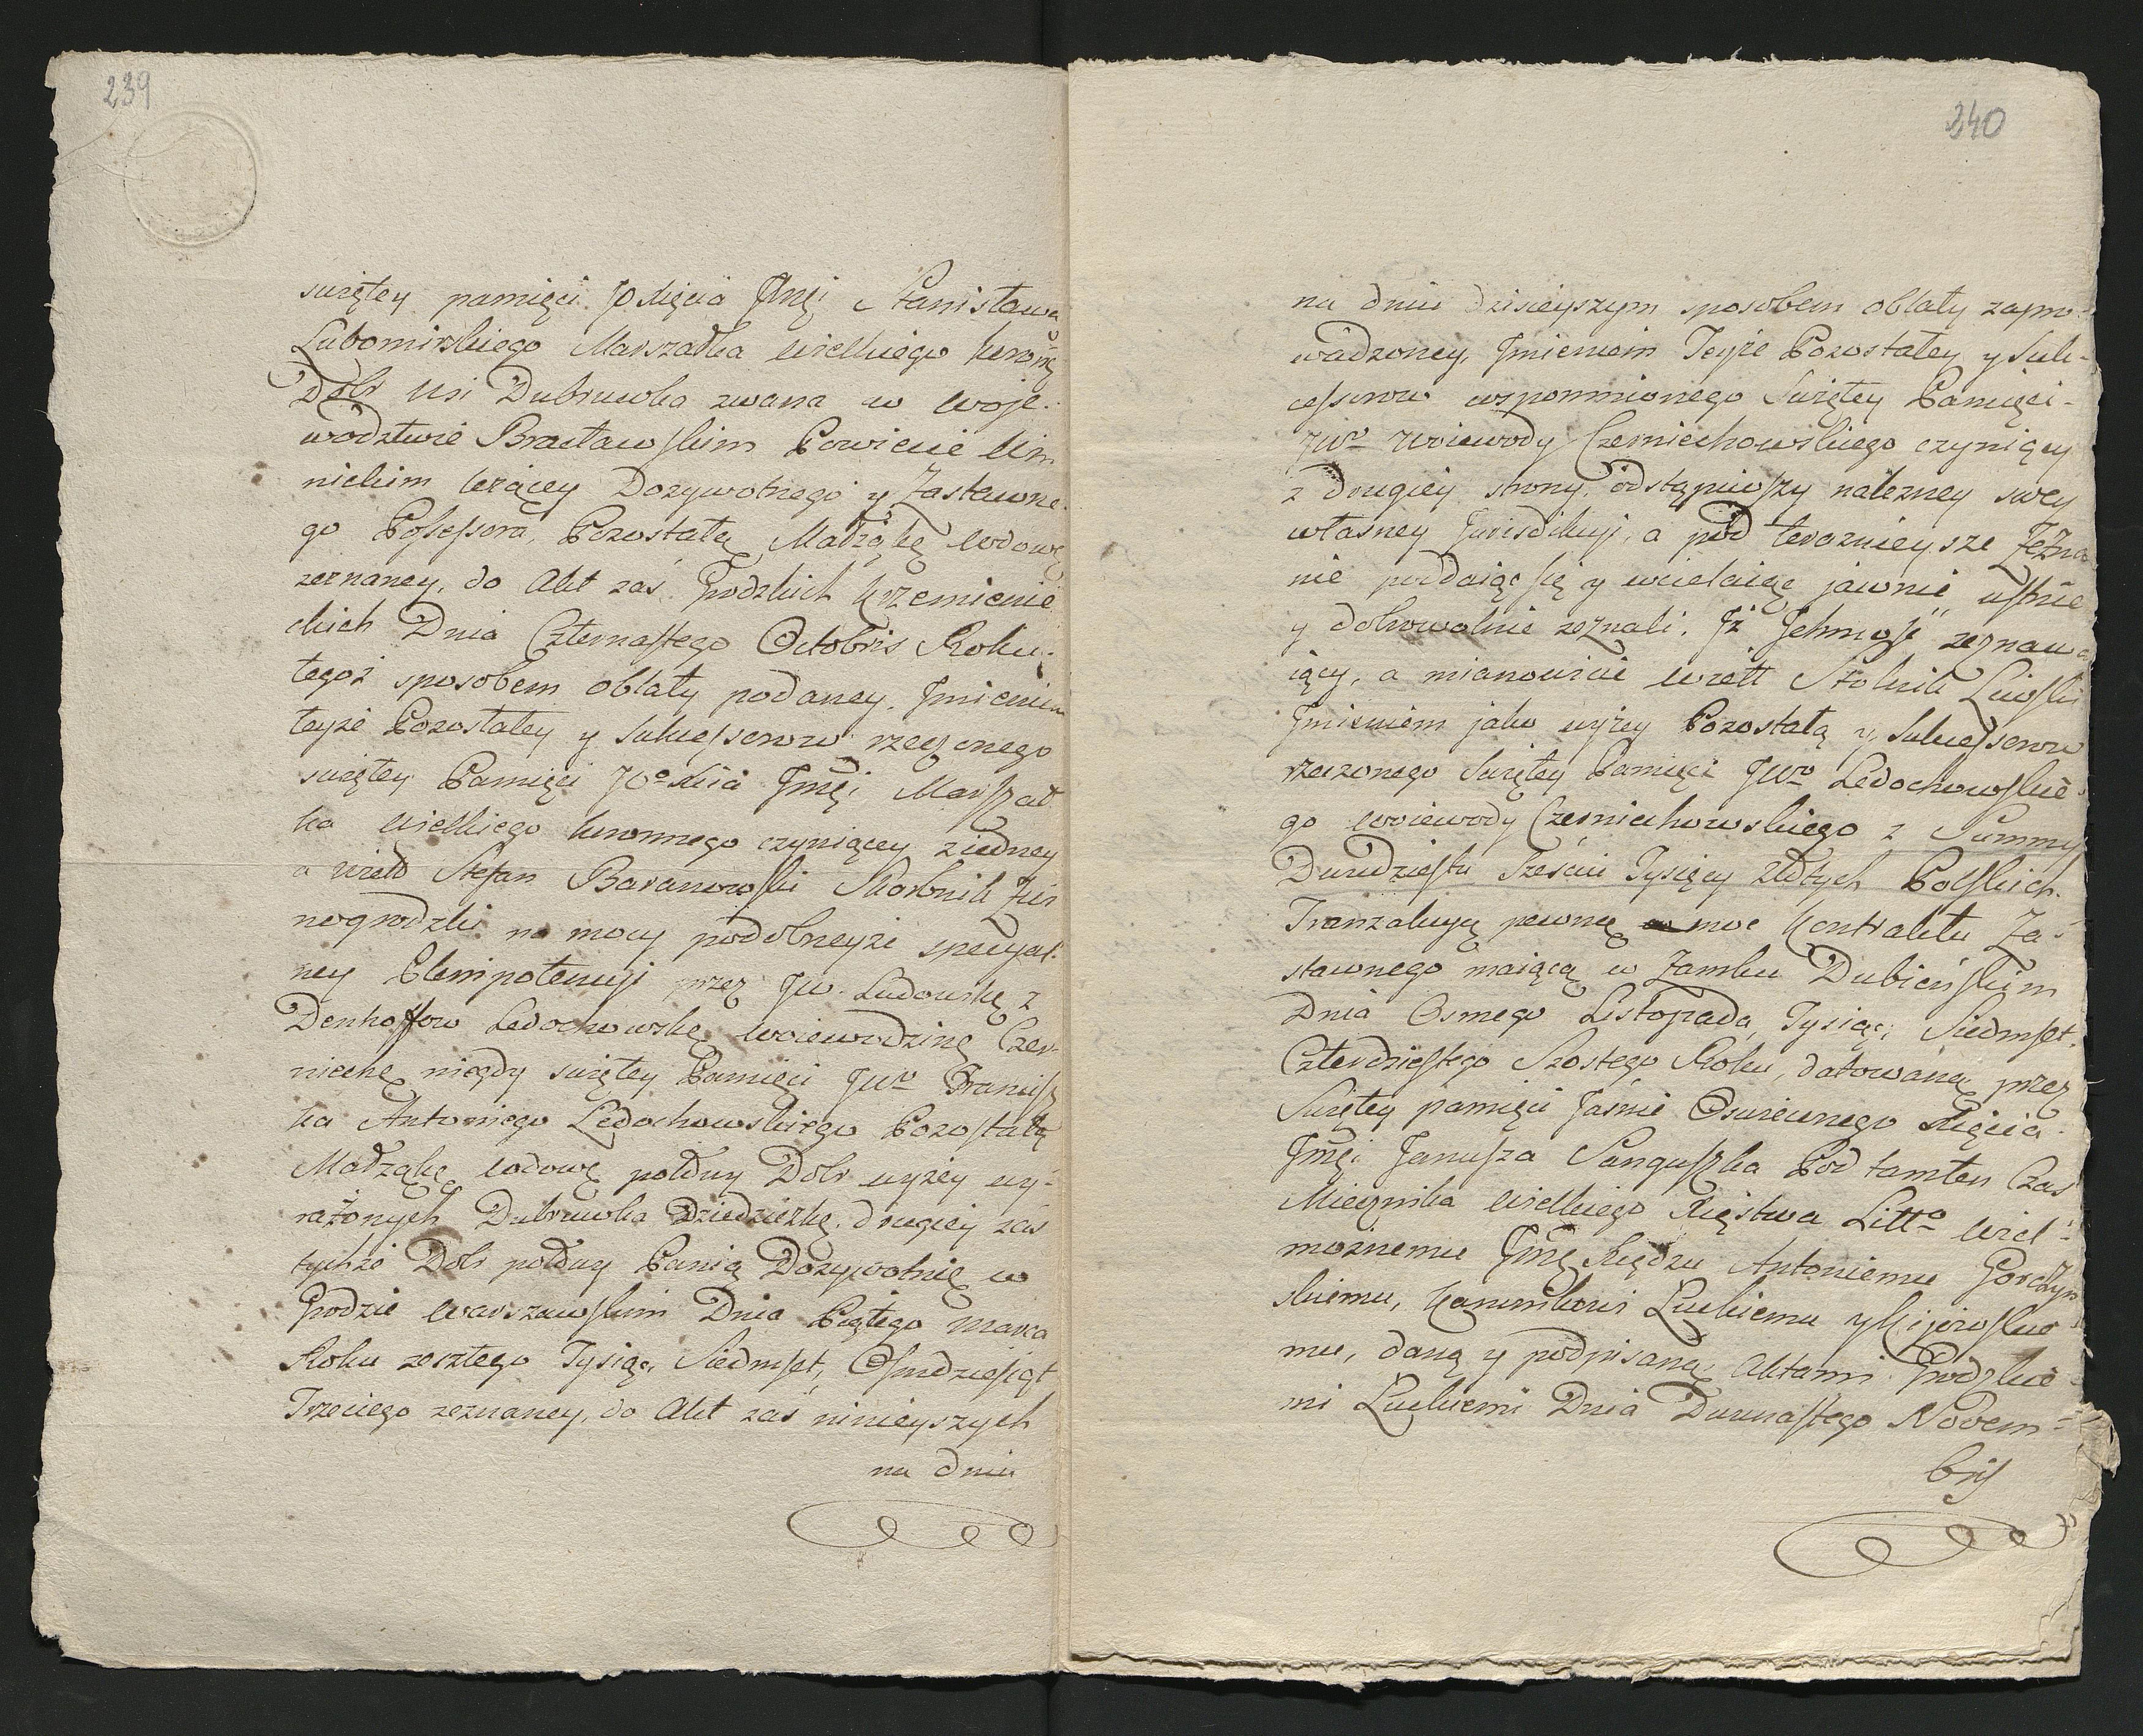 239
swiętey pamięci JO Xięcia Jmci Stanisława
Lubomirskiego Marszałka wielkiego Koronę
Dobr wsi Dubrowka zwana w woje-
wodztwie Bracławskim Powiecie Win
nickim leżącey Dozywotnego y Zastawne-
go Possessora, Pozostałą Małżąkę wdowę
zeznaney, do Akt zaś Grodzkich Krzemienie
ckich Dnia Czternastego Octobris Roku
tegoż sposobem oblaty podaney. Jmieniem
teyże Pozostałey y Sukcessorow rzeczonego
swiętey Pamięci JOº Xcia Jmci Marszał
ka wielkiego koronnego czyniący z iedney
a Wielº Stefan Baranowski Skarbnik
nogrodzki na mocy podobneyże specyal-
ney Plenipotencyi przez JW. Ludowikę z
Denhoffow Ledochowskę woiewodzinę Czer-
niechę niegdy swiętey Pamięci JWº Francisz
ka Antoniego Ledochowskiego Pozostałą
Małżąkę wdowę połowy Dobr wyżey wy-
rażonych Dubrowka Dziedziczkę, drugiey zaś
tychże Dobr połowy Panią Dożywotnię w
Grodzie Warszawskim Dnia Piątego Marca
Roku zeszłego Tysiąc Siedmset, Osmdziesiąt
Trzeciego zeznaney, do Akt zaś ninieyszych
na dniu
240
na dniu dzisieyszym sposobem oblaty zapro-
wadzoney, Jmieniem Teyże Pozostałey y Suk-
cessorow wspomnionego Swiętey Pamięci
JWº Woiewody Czerniechowskiego czyniący
z drugiey strony, odstąpiwszy należney swey
własney Jurisdikcyi, a pod teraznieysze Zezna
nie poddaiąc się y wcielaiąc jawnie ustnie
y dobrowolnie zeznali. Iż Jchmość zeznawa
iący, a mianowicie Wielº Stolnik Liwski
Jmieniem jako wyżey Pozostałą y Sukcessorow
rzeczonego Swiętey Pamięci JWº Ledochowskie-
go Woiewody Czerniechowskiego z Summy
Dwudziestu Sześciu Tysięcy Złotych Polskich
Tranzakcyą pewnę moc Kontraktu Za-
stawnego maiącą w Zamku Dubieńskim
Dnia Osmego Listopada, Tysiąc Siedmset
Czterdziestego Szostego Roku, datowaną przez
Swiętey pamięci Jaśnie Oswieconego Xięcia
Jmci Janusza Sanguszka Pod tamten Czas
Miecznika Wielkiego Xięstwa Littº Wiel-
możnemu Jmę Xiędzu Antoniemu
skiemu, Kanonikowi Łuckiemu y Kijowskie
mu, daną y podpisaną, Aktami Grodzkie-
mi Łuckiemi Dnia Dwunastego Novem-
bris